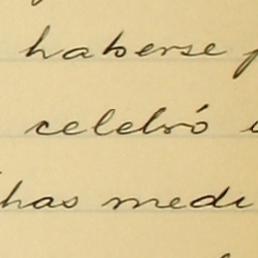 haberse
celebró
has medi